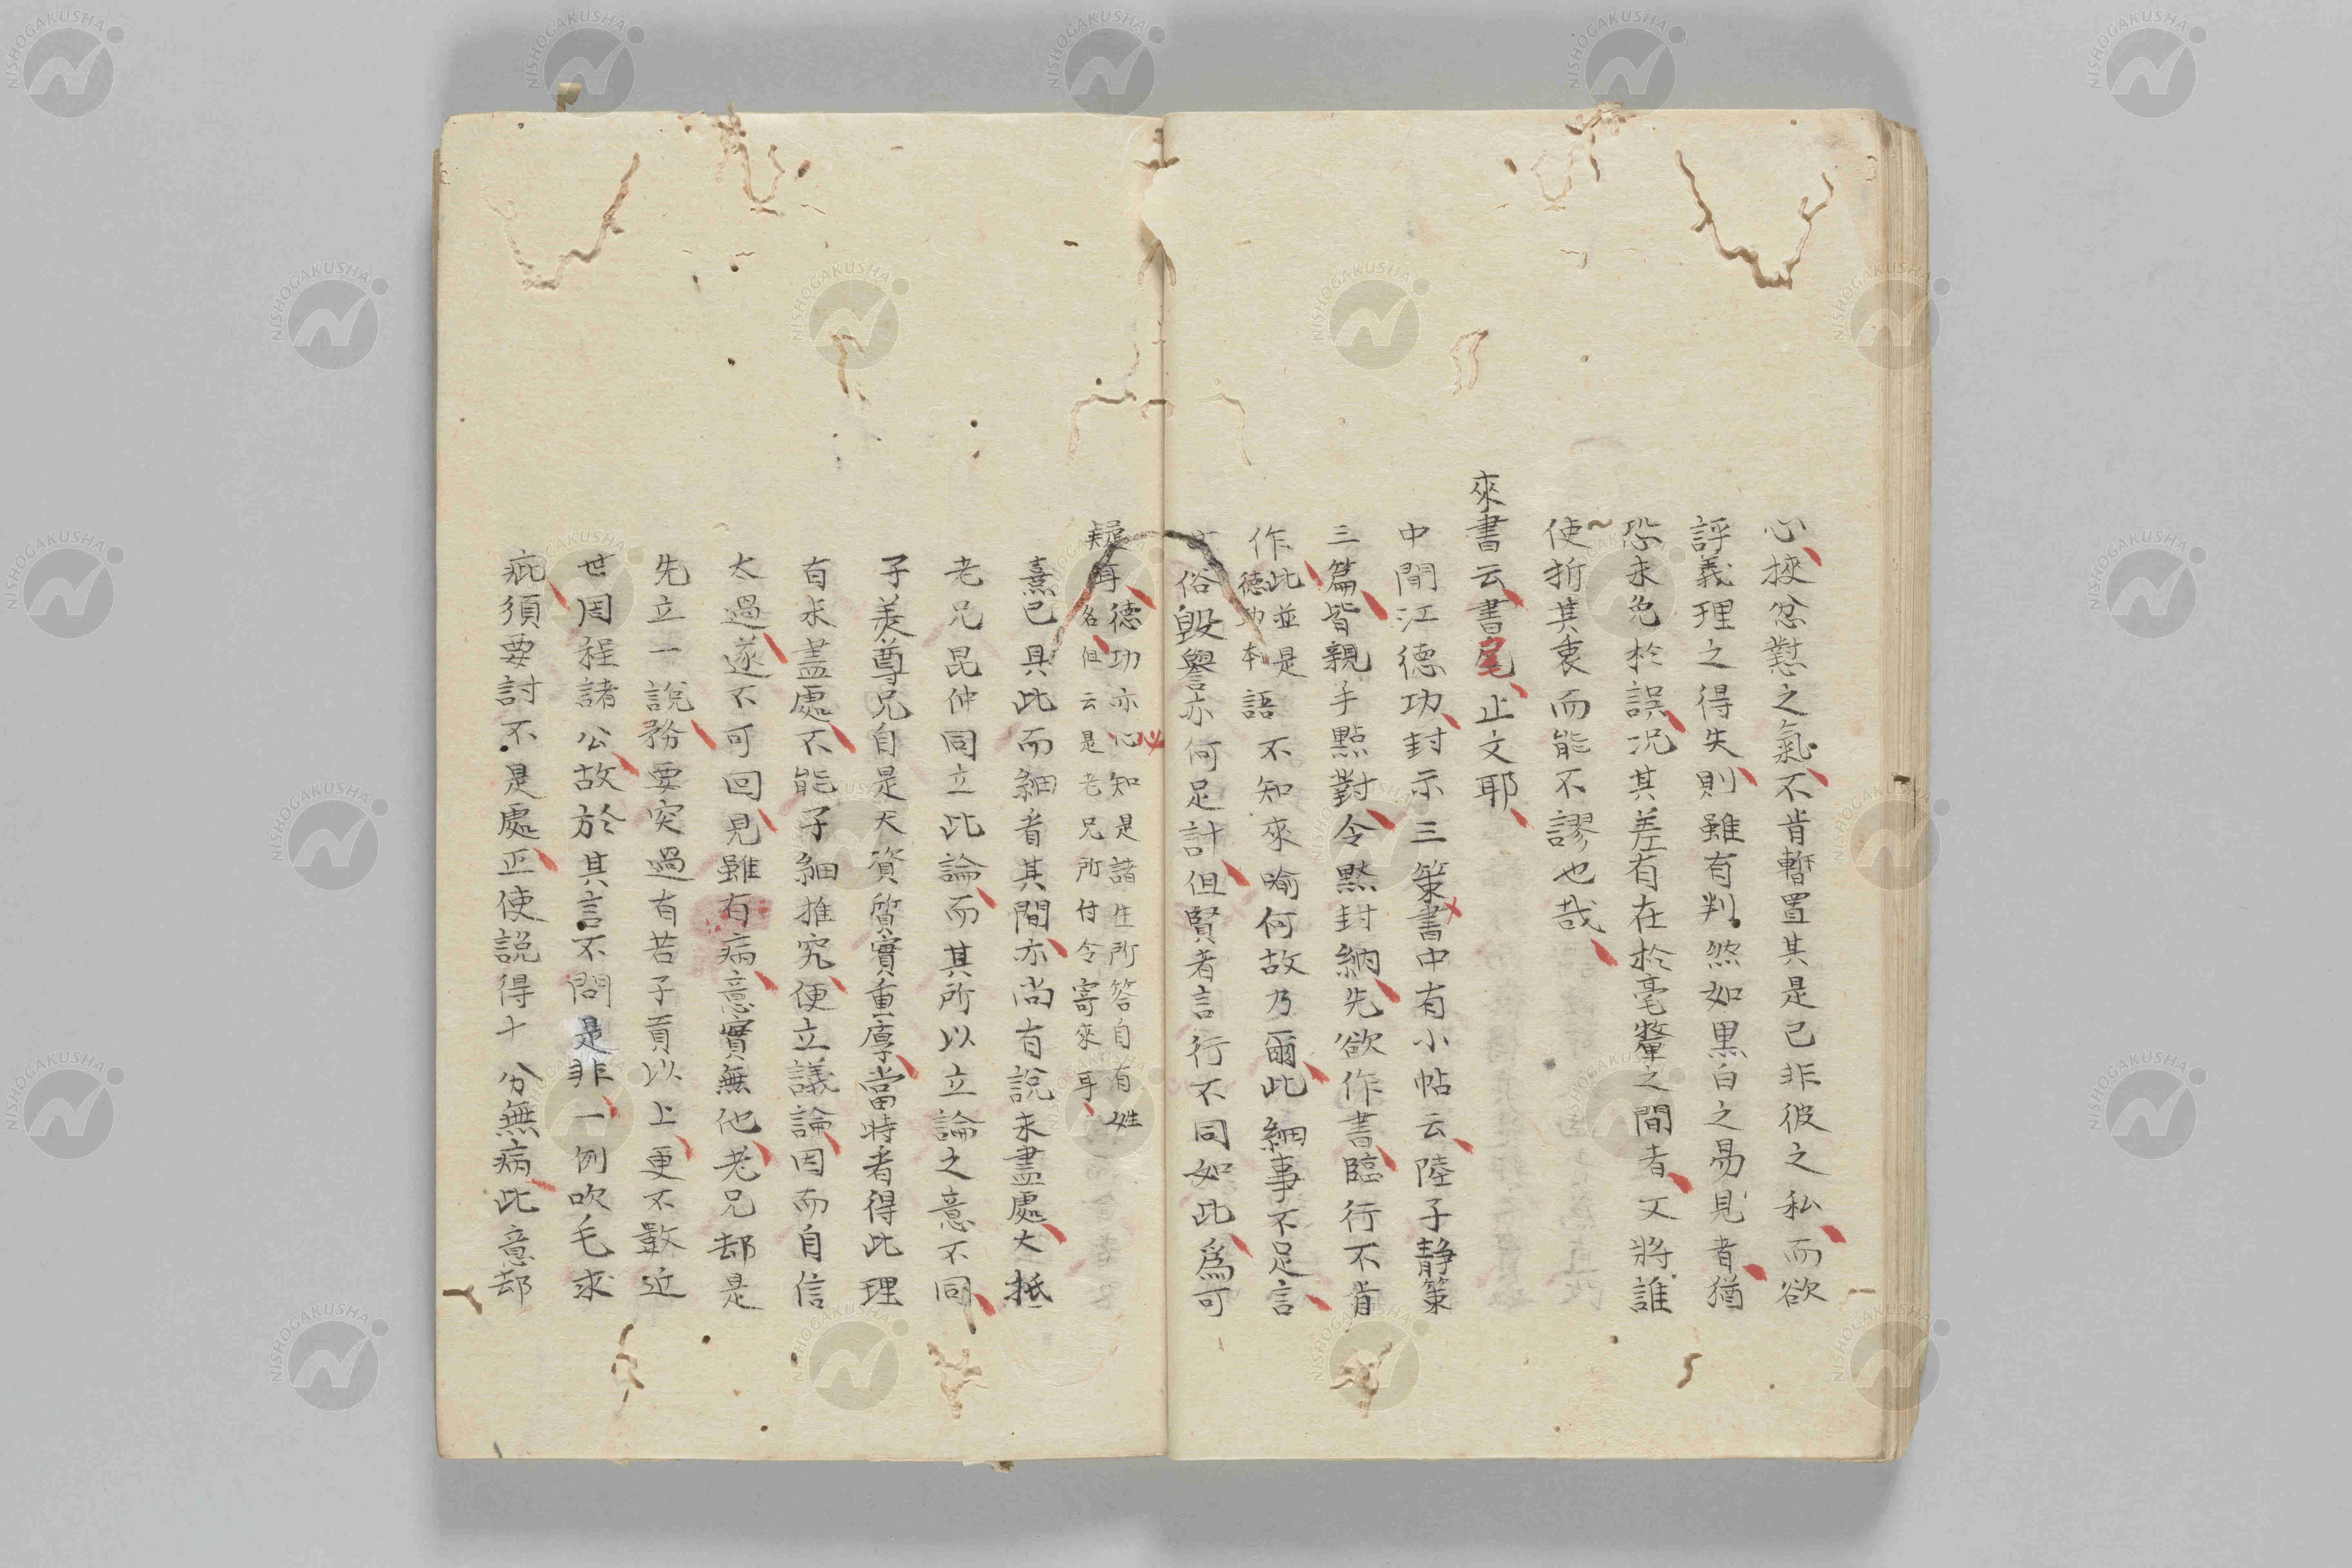 心挾忿懟之氣不肯暫置其是己非彼之私而欲
評義理之得失則雖有判然如黒白之易見者猶
恐未免於誤况其差有在於毫釐之間者又將誰
使折其衷而能不謬也哉
來書云書尾止文耶
中間江德功封示三策書中有小帖云陸子静策
三篇皆親手點對令黙封納先欲作書臨行不肯
作此並是德功本語不知來喻何故乃爾此細事不足言
俗毀譽亦何足計但賢者言行不同如此爲可
疑耳德功亦必知是諸生所答自有姓
名但云是老兄所付令寄來耳
熹已具此而細看其間亦尚有說未盡處大抵
老兄昆仲同立此論而其所以立論之意不同
子美尊兄自是天資質實重厚當時看得此理
有未盡處不能子細推究便立議論因而自信
太過遂不可回見雖有病意實無他老兄却是
先立一說務要突過有若子貢以上更不數近
世周程諸公故於其言不問是非一例吹毛求
疵須要討不是處正使說得十分無病此意却
NISHOGAKUSHA